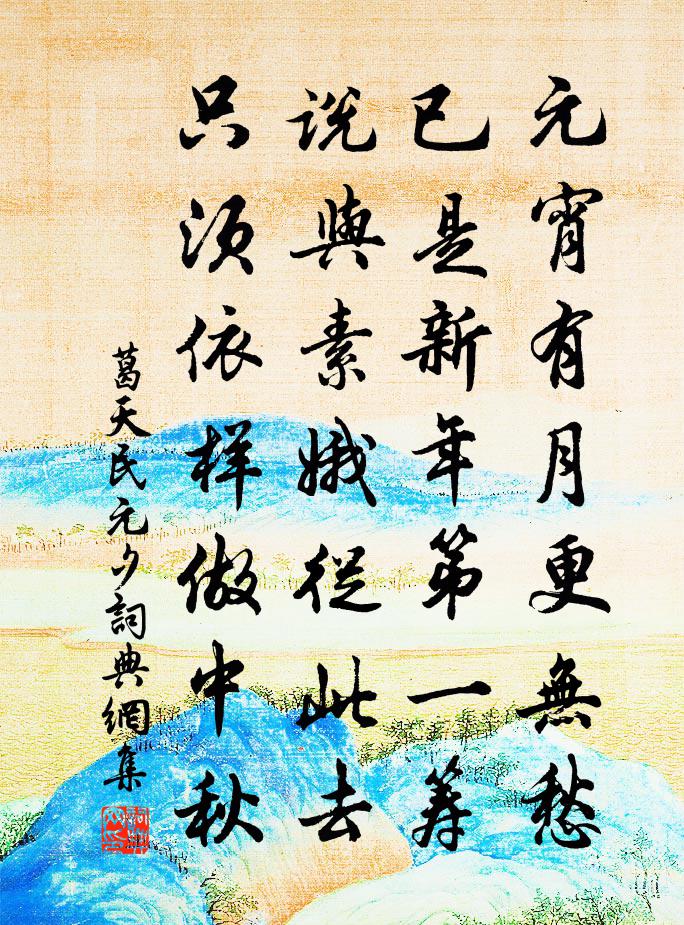 元宵有月更無愁
已是新年第一籌
説與素娥從此去
只须依样做中秋
葛天民元夕詞典網集